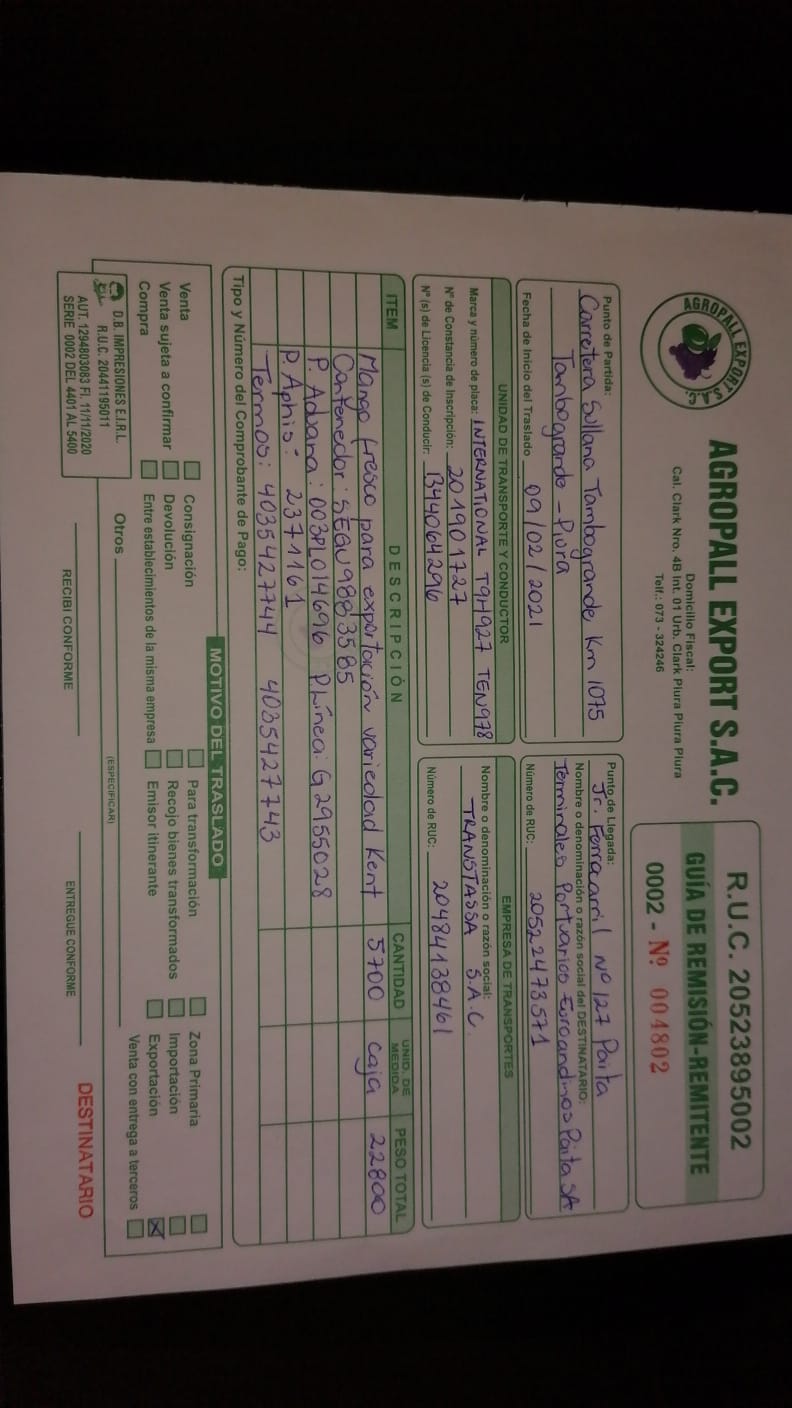 AGROPALL EXPORT S.A.C.
AGROPALL EXPORT S.A.C.
Domicilio Fiscal:
Cal. Clark Nro. 4B Int. 01 Urb. Clark Piura Piura Piura
Telf.: 073 - 324246
R.U.C. 20523895002
GUÍA DE REMISIÓN-REMITENTE
0002 - Nº 004802
Punto de Partida:
Carretera Sullana Tambogrande Km 1075
Tambogrande - Piura
Fecha de Inicio del Traslado 09/02/2021
Punto de Llegada:
Jr. Ferrocarril Nº 127 Paita
Nombre o denominación o razón social del DESTINATARIO:
Terminales Portuarios Euroandinos Paita SA
Número de RUC: 20522473571
UNIDAD DE TRANSPORTE Y CONDUCTOR
Marca y número de placa: INTERNATIONAL T9H927 TEN978
Nº de Constancia de Inscripción: 201901727
Nº (s) de Licencia (s) de Conducir: B44064296
EMPRESA DE TRANSPORTES
Nombre o denominación o razón social:
TRANSTASSA S.A.C.
Número de RUC: 20484138461
ITEM DESCRIPCIÓN CANTIDAD UNID. DE MEDIDA PESO TOTAL
Mango fresco para exportación variedad Kent 5700 caja 22800
Contenedor: SEGU9883585
P. Aduana: 003PL014696 PLínea: G2955028
P. Aphis: 2371161
Termos: 4035427744 4035427743
Tipo y Número del Comprobante de Pago:
MOTIVO DEL TRASLADO
Venta Consignación Para transformación Zona Primaria
Venta sujeta a confirmar Devolución Recojo bienes transformados Importación
Compra Entre establecimientos de la misma empresa Emisor itinerante Exportación X
Otros Venta con entrega a terceros
(ESPECIFICAR)
D.B. IMPRESIONES E.I.R.L.
R.U.C. 20441195011
AUT. 1294803083 FI. 11/11/2020
SERIE 0002 DEL 4401 AL 5400
RECIBI CONFORME
ENTREGUE CONFORME
DESTINATARIO